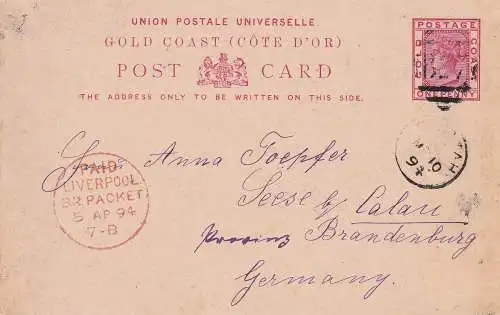 UNION POSTALE UNIVERSELLE.
GOLD COAST (CÔTE D'OR)
POST CARD
THE ADDRESS ONLY TO BE WRITTEN ON THIS SIDE.
POSTAGE
GOLD
COAST
ONE PENNY
Anna Toepfer
Seese bei Calau
Provinz Brandenburg
Germany.
PAID
LIVERPOOL
BR. PACKET
5 AP 94
7-B
10
94